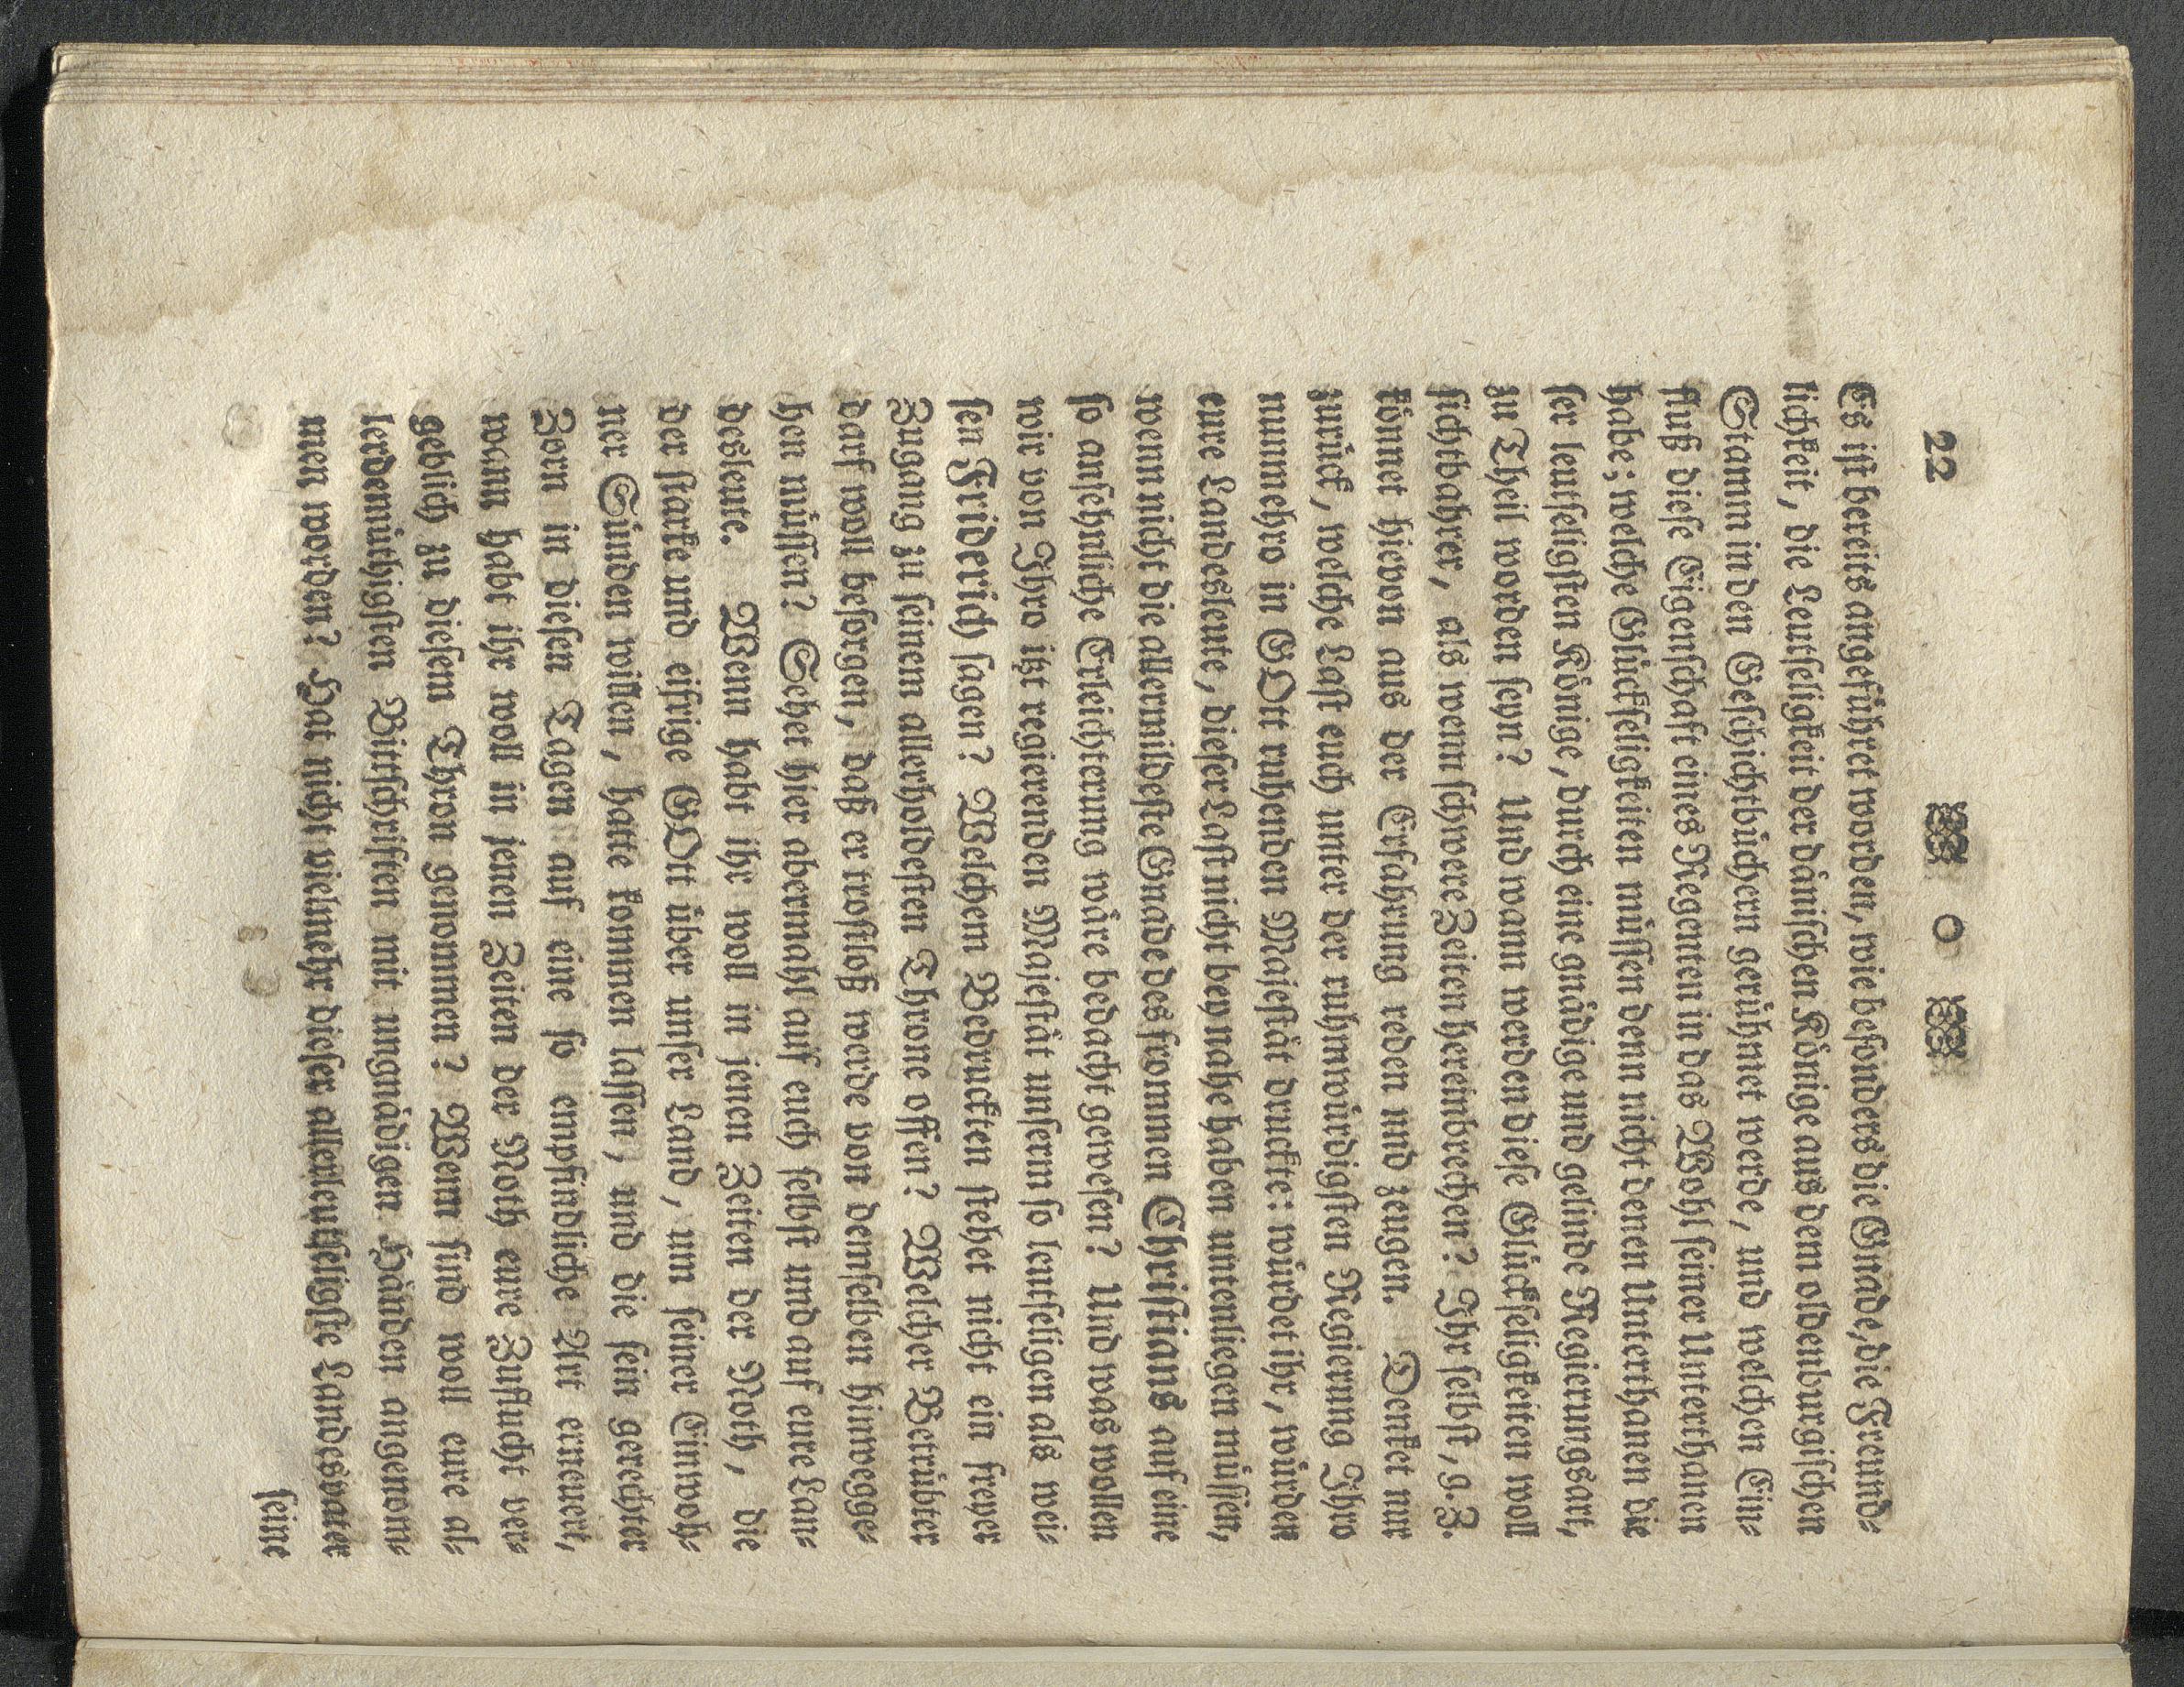 22 ○
Es ist bereits angeführet worden, wie besonders die Gnade, die Freund⸗
lichkeit, die Leutseligkeit der dänischen Könige aus dem oldenburgischen
Stamm in den Geschichtbüchern gerühmet werde, und welchen Ein⸗
fluß diese Eigenschaft eines Regenten in das Wohl seiner Unterthanen
habe; welche Glückseligkeiten müssen denn nicht denen Unterthanen die
ser leutseligsten Könige, durch eine gnädige und gelinde Regierungsart,
zu Theil worden seyn? Und wann werden diese Glückseligkeiten woll
sichtbahrer, als wenn schwere Zeiten hereinbrechen? Ihr selbst, g. Z.
könnet hievon aus der Erfahrung reden und zeugen. Denket nur
zurück, welche Last euch unter der ruhmwürdigsten Regierung Ihro
nunmehro in GOtt ruhenden Majestät druckte: würdet ihr, würden
eure Landesleute, dieser Last nicht beynahe haben untenliegen müssen,
wenn nicht die allermildeste Gnade des frommen Christians auf eine
so ansehnliche Erleichterung wäre bedacht gewesen? Und was wollen
wir von Ihro itzt regierenden Majestät unserm so leutseligen als wei⸗
sen Friderich sagen? Welchem Bedruckten stehet nicht ein freyer
Zugang zu seinem allerholdesten Throne offen? Welcher Betrübter
darf woll besorgen, daß er trostloß werde von demselben hinwegge⸗
hen müssen? Sehet hier abermahl auf euch selbst und auf eure Lan⸗
desleute. Wenn habt ihr woll in jenen Zeiten der Noth, die
der starke und eifrige GOtt über unser Land, um seiner Einwoh⸗
ner Sünden willen, hatte kommen lassen, und die sein gerechter
Zorn in diesen Tagen auf eine so empfindliche Art erneuert,
wann habt ihr woll in jenen Zeiten der Noth eure Zuflucht ver⸗
geblich zu diesem Thron genommen? Wenn sind woll eure al⸗
lerdemüthigsten Bittschriften mit ungnädigen Händen angenom⸗
men worden? Hat nicht vielmehr dieser allerleutseligste Landesvater
seine